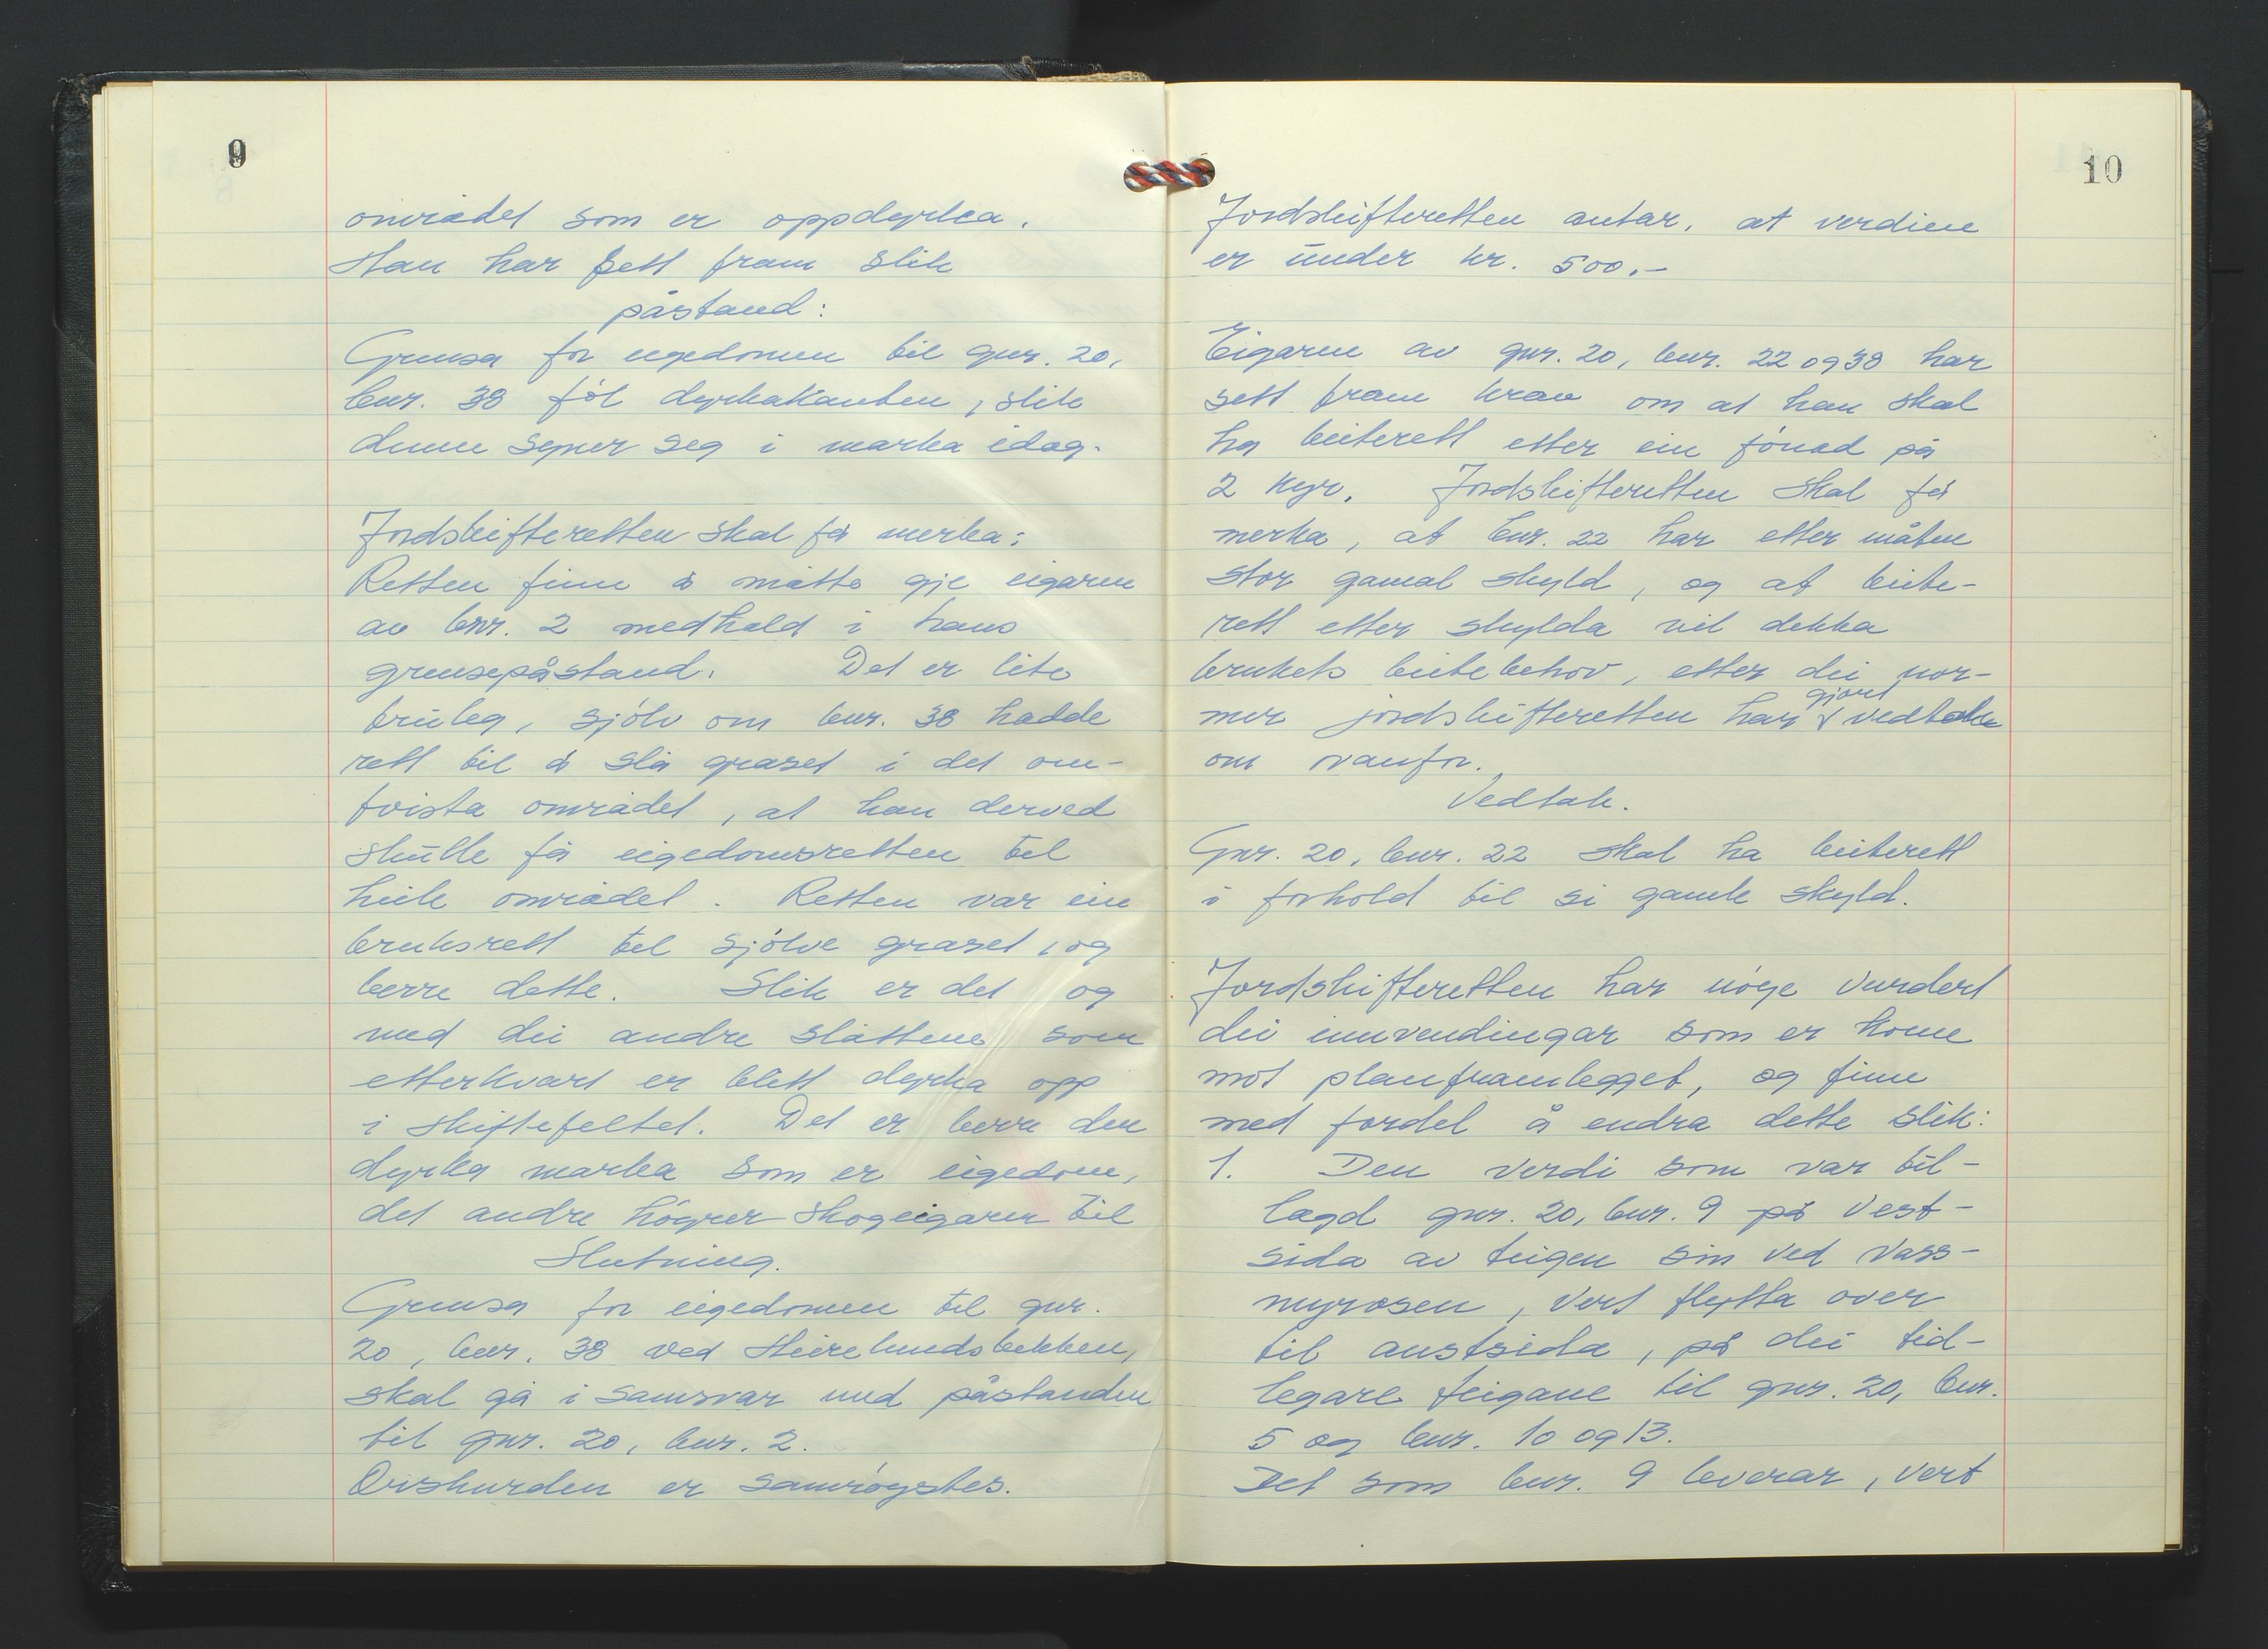 9
området som er oppdyrka.
Han har sett fram slik
påstand:
Grensa for eigedomen til gnr. 20,
bnr. 38 føl dyrkakanten, slik
denne syner seg i marka idag.
Jordskifteretten skal få merka:
Retten finn å måtte gje eigaren
av bnr. 2 medhald i hans
grensepåstand. Det er lite
truleg, sjølv om bnr. 38 hadde
rett til å slå graset i det om-
tvista området, at han derved
skulle få eigedomsretten til
heile området. Retten var ein
bruksrett til sjølve graset, og
berre dette. Slik er det og
med dei andre slåttene som
etterkvart er blitt dyrka opp
i skiftefeltet. Det er berre den
dyrka marka som er eigedom,
det andre høyrer skogeigaren til
Slutning.
Grensa for eigedomen til gnr.
20, bnr. 38 ved Heirelundsbekken,
skal gå i samsvar med påstanden
til gnr. 20, bnr. 2.
Orskurden er samrøystes.
10
Jordskifteretten antar, at verdien
er under kr. 500.-
Eigaren av gnr. 20, bnr. 22 og 38 har
sett fram krav om at han skal
ha beiterett etter ein fønad på
2 kyr. Jordskifteretten skal få
merka, at bnr. 22 har etter måten
stor gamal skyld, og at beite-
rett etter skylda vil dekka
brukets beitebehov, etter dei nor-
mer jordskifteretten har gjort vedtak
om ovanfor.
Vedtak.
Gnr. 20, bnr. 22 skal ha beiterett
i forhold til si gamle skyld.
Jordskifteretten har nøye vurdert
dei innvendingar som er kome
mot planframlegget, og finn
med fordel å endra dette slik:
1. Den verdi som var til-
lagd gnr. 20, bnr. 9 på vest-
sida av teigen sin ved Vass-
myrosen, vert flytta over
til austsida, på dei tid-
legare teigane til gnr. 20, bnr.
5 og bnr. 10 og 13.
Det som bnr. 9 leverar, vert